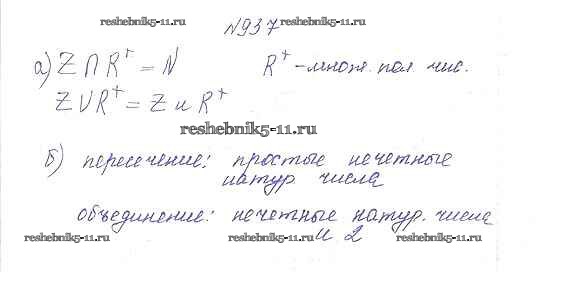 reshebnik5-11.ru №937 reshebnik5-11.ru
а) Z ∩ R⁺ = N R⁺ - множ. пол. чис.
Z U R⁺ = Z и R⁺
reshebnik5-11.ru
б) пересечение: простые нечетные
натур. числа
объединение: нечетные натур. числа
reshebnik5-11.ru reshebnik5-11.ru и 2 reshebnik5-11.ru